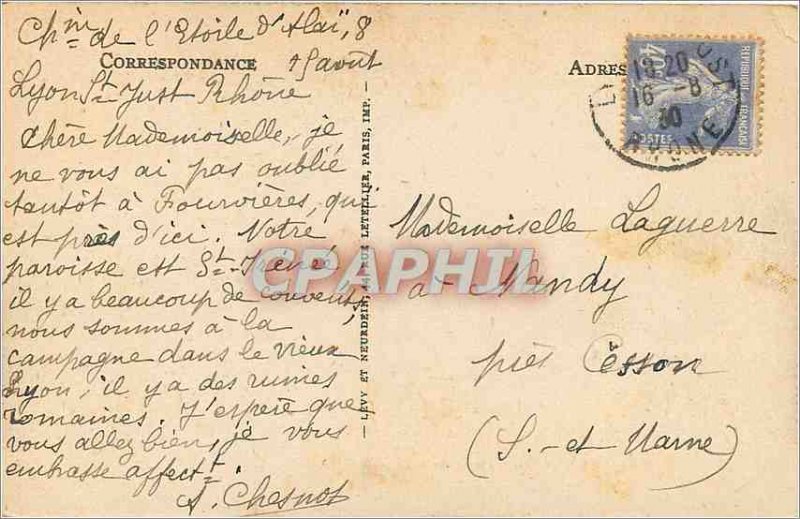 Ch^in de l'Etoile d'Alaï, 8
CORRESPONDANCE 15 août
Lyon St-Just Rhône
Chère Mademoiselle, je
ne vous ai pas oublié
tantôt à Fourvières, qui
est près d'ici. Notre
paroisse est St-Irénée
il y a beaucoup de couvents,
nous sommes à la
campagne dans le vieux
Lyon, il y a des ruines
romaines. J'espère que
vous allez bien, je vous
embrasse affect^t.
A. Chesnot
— LÉVY ET NEURDEIN, 44, RUE LETELLIER, PARIS, IMP. —
ADRES
40c
REPUBLIQUE FRANÇAISE
POSTES
18 20
16 - 8
30
RHONE
Mademoiselle Laguerre
à Nandy
près Cesson
(S.-et Marne)
CPAPHIL